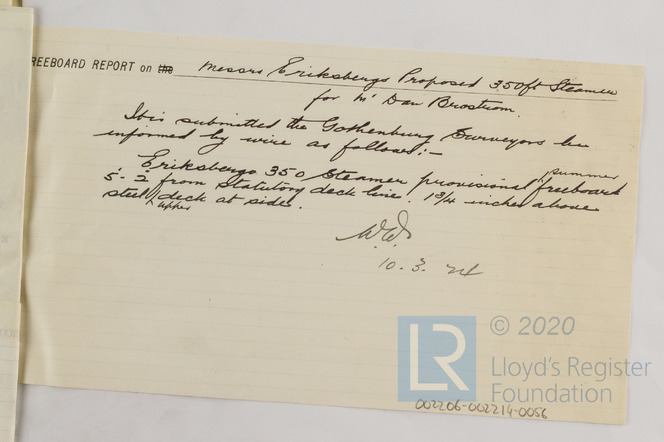 REEBOARD REPORT on the Messrs Eriksbergs Proposed 350ft Steamer
for Mr Dan Broström.
It is submitted the Gothenburg Surveyors be
informed by wire as follows:-
Eriksbergs 350 Steamer provisional summer freeboard
5-2 from Statutory deck line. 1¾ inches above
steel upper deck at side.
10.3.24
LR
© 2020
Lloyd's Register
Foundation
002206-002214-0056